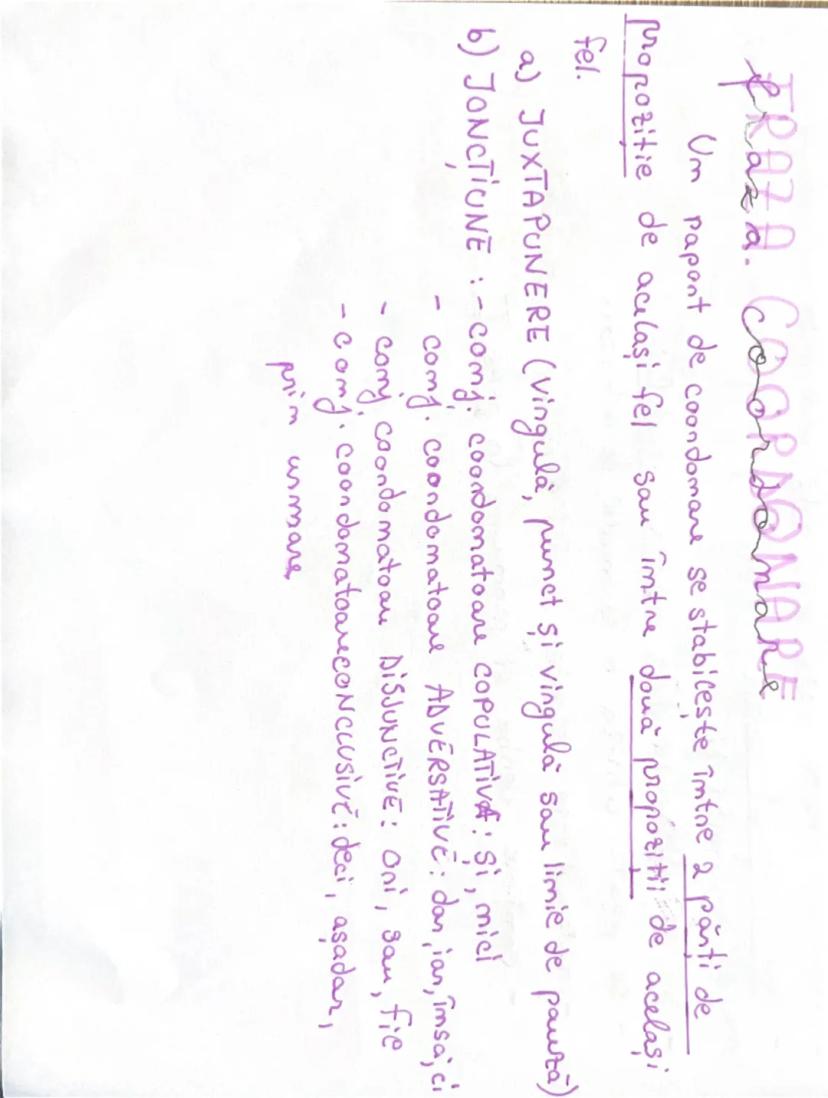 FRAZA. COORDONARE
fraza. coordonare
Un raport de coordonare se stabilește între 2 părți de
propoziție de același fel sau între două propoziții de același
fel.
a) JUXTAPUNERE (virgulă, punct și virgulă sau linie de pauză)
b) JONCȚIUNE : - conj. coordonatoare COPULATIVE: și, nici
- conj. coordonatoare ADVERSATIVE: dar, iar, însă, ci
- conj. coordonatoare DISJUNCTIVE: ori, sau, fie
- conj. coordonatoare CONCLUSIVE: deci, așadar,
prin urmare